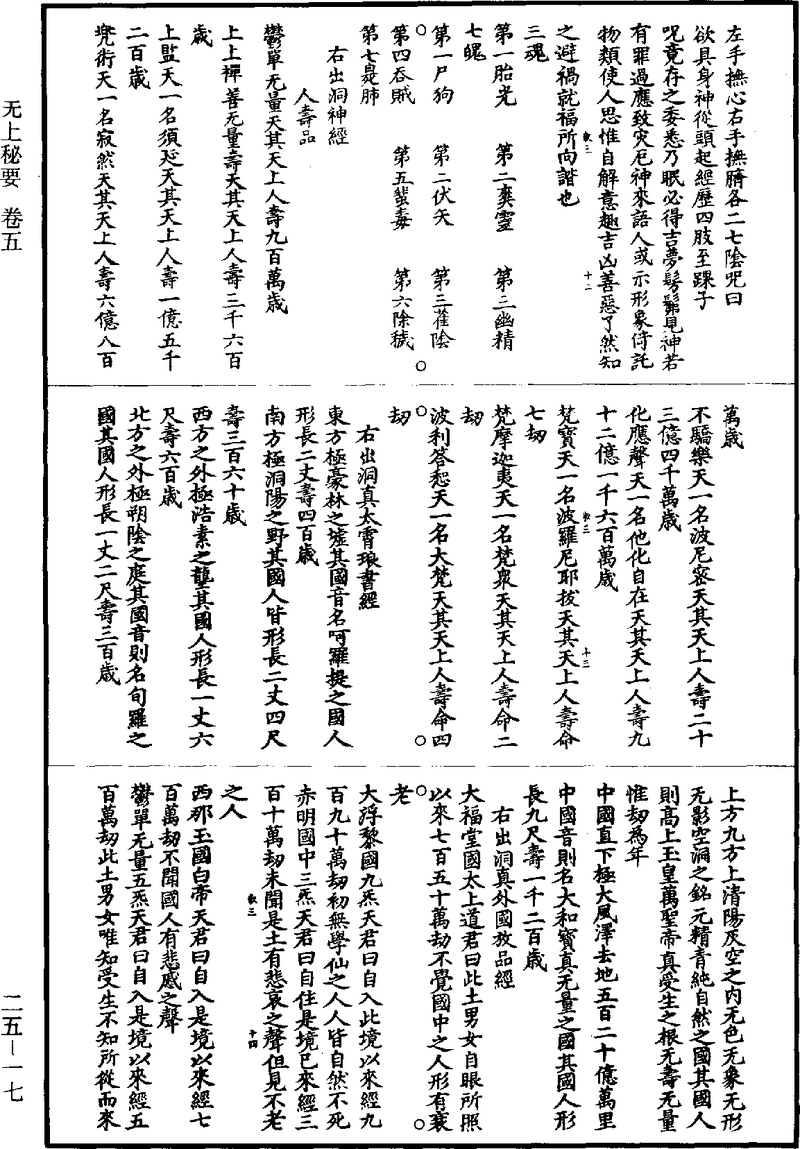 左手撫心右手撫臍各二七陰咒曰
欲具身神從頭起經歷四肢至踝子
咒竟存之委悉乃眠必得吉夢髣髴見神若
有罪過應致灾厄神來語人或示形象倚託
物類使人思惟自解意趣吉凶善惡了然知
之避禍就福所向諧也
三魂
第一胎光 第二爽靈 第三幽精
七魄
第一尸狗 第二伏矢 第三雀陰
第四吞賊 第五蜚毒 第六除穢
第七臭肺
右出洞神經
人壽品
鬱單无量天其天上人壽九百萬歲
上上禪善无量壽天其天上人壽三千六百
歲
上監天一名須延天其天上人壽一億五千
二百歲
兜術天一名寂然天其天上人壽六億八百
萬歲
不驕樂天一名波尼密天其天上人壽二十
三億四千萬歲
化應聲天一名他化自在天其天上人壽九
十二億一千六百萬歲
梵寶天一名波羅尼耶拔天其天上人壽命
七劫
梵摩迦夷天一名梵衆天其天上人壽命二
劫
波利答惒天一名大梵天其天上人壽命四
劫
右出洞真太霄琅書經
東方極豪林之墟其國音名呵羅提之國人
形長二丈壽四百歲
南方極洞陽之野其國人皆形長二丈四尺
壽三百六十歲
西方之外極浩素之壟其國人形長一丈六
尺壽六百歲
北方之外極朔陰之庭其國音則名旬羅之
國其國人形長一丈二尺壽三百歲
上方九方上清陽及空之內无色无象无形
无影空洞之銘元精青純自然之國其國人
則高上玉皇萬聖帝真受生之根无壽无量
惟劫為年
中國直下極大風澤去地五百二十億萬里
中國音則名大和寶真无量之國其國人形
長九尺壽一千二百歲
右出洞真外國放品經
大福堂國太上道君曰此土男女自眼所照
以來七百五十萬劫不覺國中之人形有衰
老
大浮黎國九炁天君曰自入此境以來經九
百九十萬劫初無學仙之人人皆自然不死
赤明國中三炁天君曰自住是境已來經三
百十萬劫未聞是土有悲哀之聲但見不老
之人
西那玉國白帝天君曰自入是境以來經七
百萬劫不聞國人有悲慼之聲
鬱單无量五炁天君曰自入是境以來經五
百萬劫此土男女唯知受生不知所從而來
无上秘要 卷五
二五—一七